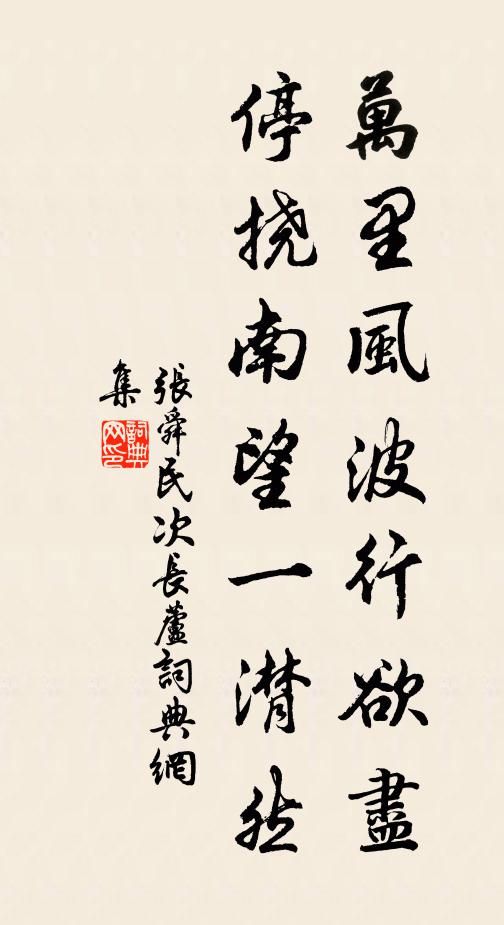 萬里風波行欲盡
停挠南望一潸然
張舜民次長蘆詞典網
集
詞典网印